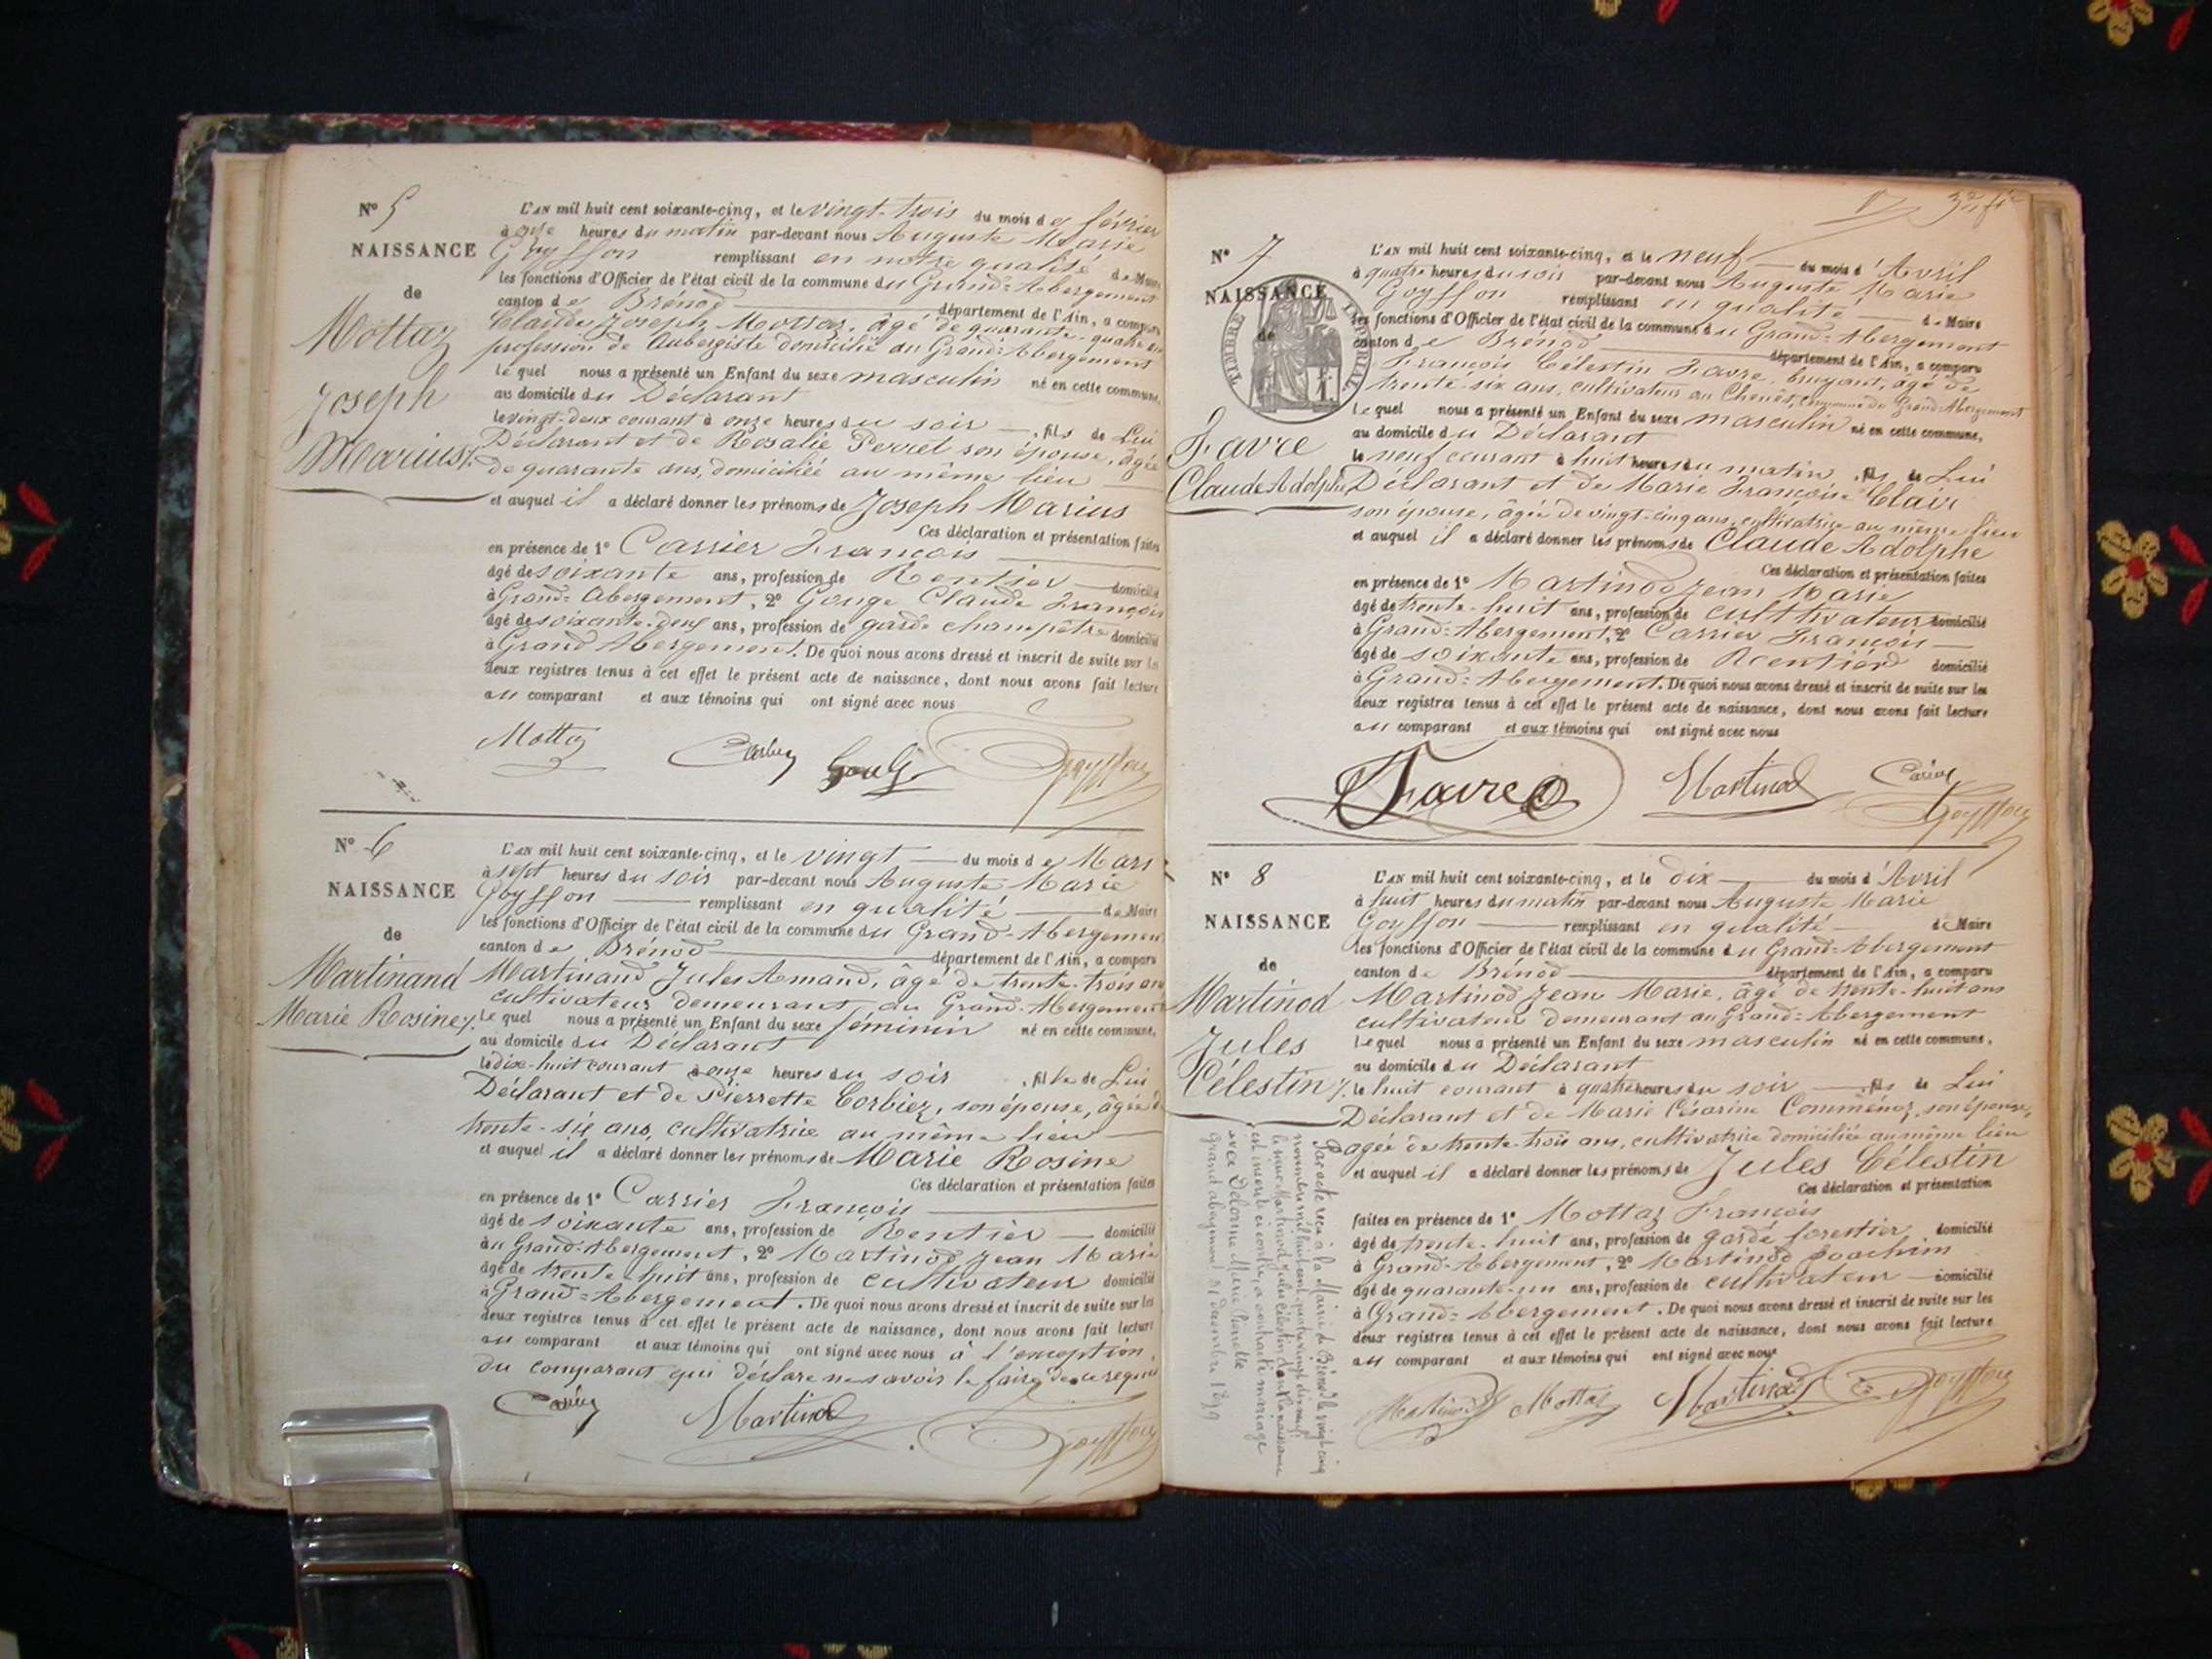 N° 5
NAISSANCE
de
Mottaz
Joseph
Marius
L'AN mil huit cent soixante-cinq, et le vingt-trois du mois de février
à onze heures du matin par-devant nous Auguste Marie
Goyffon remplissant en notre qualité de Maire
les fonctions d'Officier de l'état civil de la commune du Grand-Abergement
canton de Brénod département de l'Ain, a comparu
Claude Joseph Mottaz, âgé de quarante-quatre ans
profession de Aubergiste domicilié au Grand-Abergement
lequel nous a présenté un Enfant du sexe masculin né en cette commune,
au domicile du Déclarant
le vingt-deux courant à onze heures du soir , fils de Lui
Déclarant et de Rosalie Perret son épouse, âgée
de quarante ans, domiciliée au même lieu
et auquel il a déclaré donner les prénoms de Joseph Marius
Ces déclaration et présentation faites
en présence de 1° Carrier François
âgé de soixante ans, profession de Rentier domicilié
à Grand-Abergement, 2° Gouge Claude François
âgé de soixante-deux ans, profession de garde champêtre domicilié
à Grand Abergement. De quoi nous avons dressé et inscrit de suite sur les
deux registres tenus à cet effet le présent acte de naissance, dont nous avons fait lecture
au comparant et aux témoins qui ont signé avec nous
Mottaz Goyffon
N° 6
NAISSANCE
de
Martinand
Marie Rosine
L'AN mil huit cent soixante-cinq, et le vingt du mois de Mars
à sept heures du soir par-devant nous Auguste Marie
Goyffon remplissant en qualité de Maire
les fonctions d'Officier de l'état civil de la commune du Grand-Abergement
canton de Brénod département de l'Ain, a comparu
Martinand Jules Amand, âgé de trente-trois ans
cultivateur demeurant au Grand-Abergement
Lequel nous a présenté un Enfant du sexe féminin né en cette commune,
au domicile du Déclarant
le dix-huit courant à onze heures du soir , fille de Lui
Déclarant et de Pierrette Corbiez, son épouse, âgée de
trente-six ans, cultivatrice au même lieu
et auquel il a déclaré donner les prénoms de Marie Rosine
Ces déclaration et présentation faites
en présence de 1° Carrier François
âgé de soixante ans, profession de Rentier domicilié
au Grand-Abergement, 2° Martinod Jean Marie
âgé de trente-huit ans, profession de cultivateur domicilié
à Grand-Abergement. De quoi nous avons dressé et inscrit de suite sur les
deux registres tenus à cet effet le présent acte de naissance, dont nous avons fait lecture
au comparant et aux témoins qui ont signé avec nous à l'exception
du comparant qui déclare ne savoir le faire de ce requis
Martinod Goyffon
N° 7
NAISSANCE
de
TIMBRE IMPÉRIAL
Favre
Claude Adolphe
L'AN mil huit cent soixante-cinq, et le neuf du mois d'Avril
à quatre heures du soir par-devant nous Auguste Marie
Goyffon remplissant en qualité de Maire
les fonctions d'Officier de l'état civil de la commune du Grand-Abergement
canton de Brénod département de l'Ain, a comparu
François Célestin Favre, âgé de
trente-six ans, cultivateur au commune du Grand-Abergement
Lequel nous a présenté un Enfant du sexe masculin né en cette commune,
au domicile du Déclarant
le neuf courant à huit heures du matin, fils de Lui
Déclarant et de Marie Françoise Clair
son épouse, âgée de vingt-cinq ans, cultivatrice au même lieu
et auquel il a déclaré donner les prénoms de Claude Adolphe
Ces déclaration et présentation faites
en présence de 1° Martinod Jean Marie
âgé de trente-huit ans, profession de cultivateur domicilié
à Grand-Abergement, 2° Carrier François
âgé de soixante ans, profession de Rentier domicilié
à Grand-Abergement. De quoi nous avons dressé et inscrit de suite sur les
deux registres tenus à cet effet le présent acte de naissance, dont nous avons fait lecture
au comparant et aux témoins qui ont signé avec nous
Favre Martinod Goyffon
N° 8
NAISSANCE
de
Martinod
Jules
Célestin
L'AN mil huit cent soixante-cinq, et le dix du mois d'Avril
à huit heures du matin par-devant nous Auguste Marie
Goyffon remplissant en qualité de Maire
les fonctions d'Officier de l'état civil de la commune du Grand-Abergement
canton de Brénod département de l'Ain, a comparu
Martinod Jean Marie, âgé de trente-huit ans
cultivateur demeurant au Grand-Abergement
Lequel nous a présenté un Enfant du sexe masculin né en cette commune,
au domicile du Déclarant
le huit courant à quatre heures du soir , fils de Lui
Déclarant et de Marie Césarine Comménoz, son épouse,
agée de trente-trois ans, cultivatrice domiciliée au même lieu
et auquel il a déclaré donner les prénoms de Jules Célestin
Ces déclaration et présentation
faites en présence de 1° Mottaz François
âgé de trente-huit ans, profession de garde forestier domicilié
à Grand-Abergement, 2° Martinod Joachim
âgé de quarante-un ans, profession de cultivateur domicilié
à Grand-Abergement. De quoi nous avons dressé et inscrit de suite sur les
deux registres tenus à cet effet le présent acte de naissance, dont nous avons fait lecture
au comparant et aux témoins qui ont signé avec nous
Martinod Mottaz Martinod Goyffon
Par acte reçu à la Mairie de Brénod le vingt cinq
novembre mil huit cent quatre vingt dix neuf
le sieur Martinod Jules Célestin dont la naissance
est inscrite ci contre, a contracté mariage
avec Delorme Marie
Grand abergement 31 décembre 1899